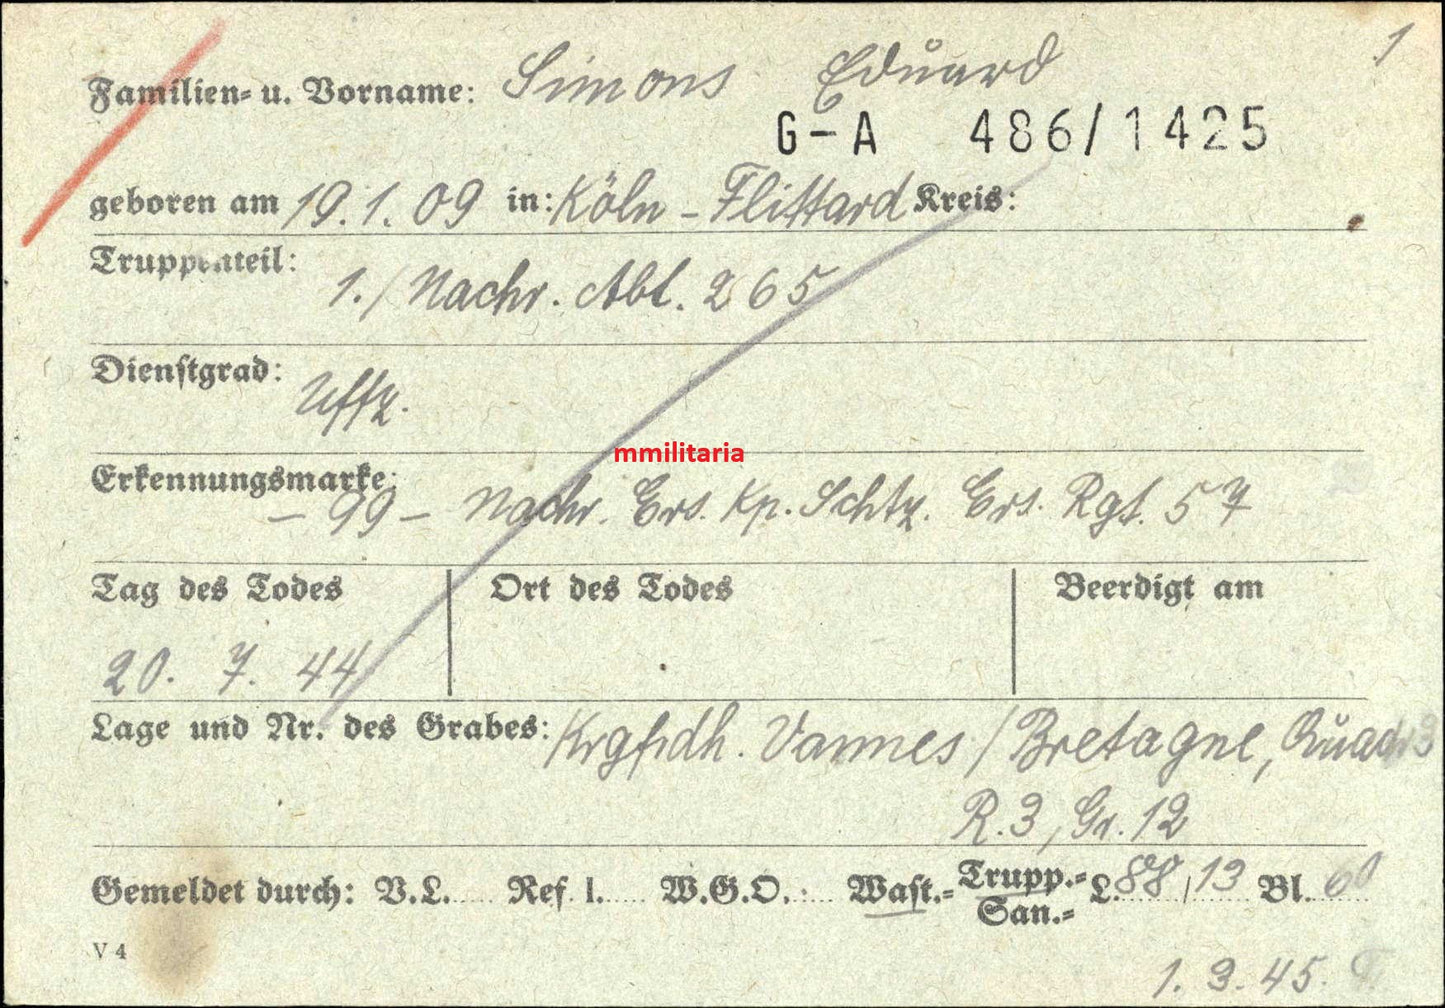 1
Familien- u. Vorname: Simons Eduard
G-A 486/1425
geboren am 19.1.09 in: Köln-Flittard Kreis:
Truppenteil: 1./Nachr. Abt. 265
Dienstgrad: Uffz.
mmilitaria
Erkennungsmarke: -99- Nachr. Ers. Kp. Schtz. Ers. Rgt. 57
Tag des Todes Ort des Todes Beerdigt am
20. 7. 44
Lage und Nr. des Grabes: Krgfrdh. Vannes/Bretagne, Quadr 3
R.3, Gr. 12
Gemeldet durch: V.L. Ref. I. W.G.O. Wast.- Trupp.- San.- L. 88/13 Bl. 60
V 4
1.3.45.